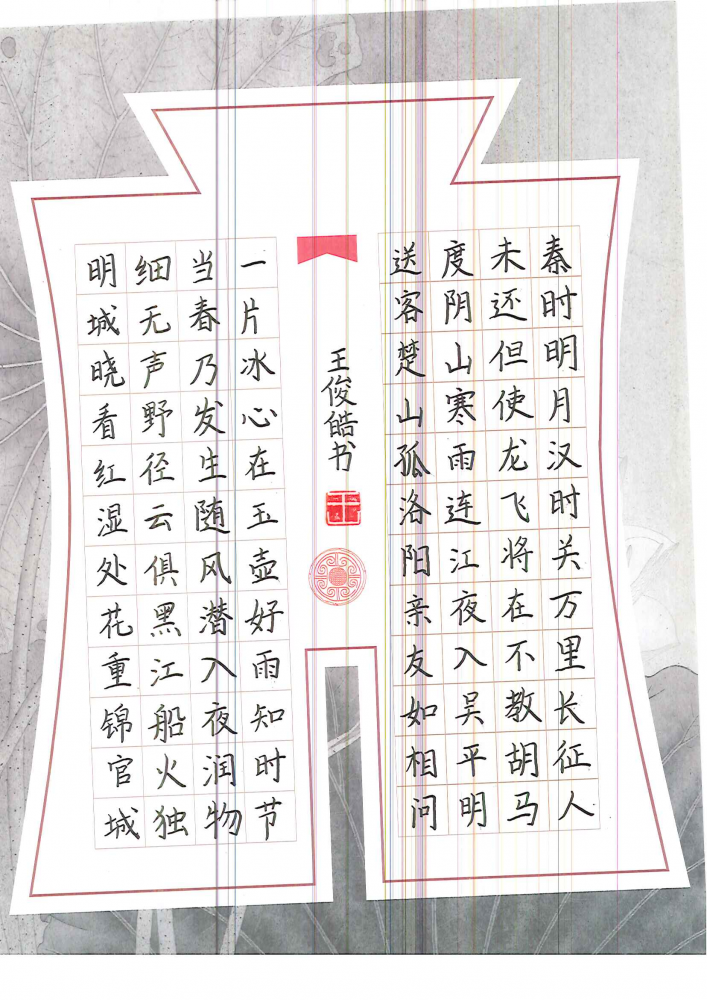 秦时明月汉时关万里长征人
未还但使龙飞将在不教胡马
度阴山寒雨连江夜入吴平明
送客楚山孤洛阳亲友如相问
王俊皓书
一片冰心在玉壶好雨知时节
当春乃发生随风潜入夜润物
细无声野径云俱黑江船火独
明城晓看红湿处花重锦官城